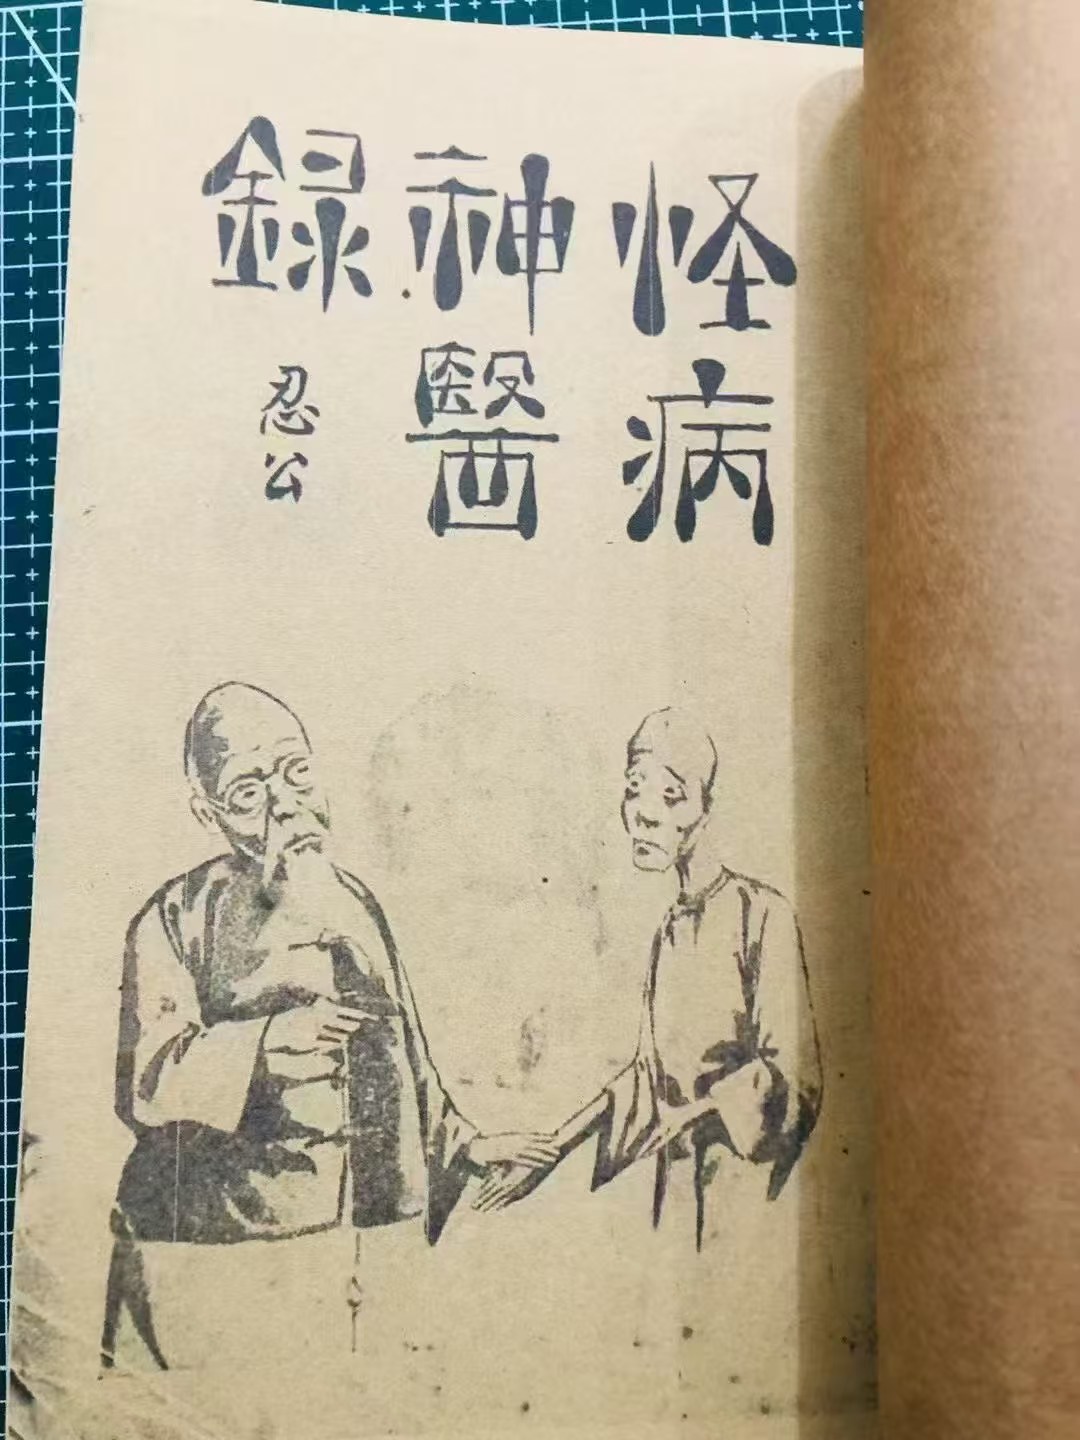 怪病
神醫
録
忍公